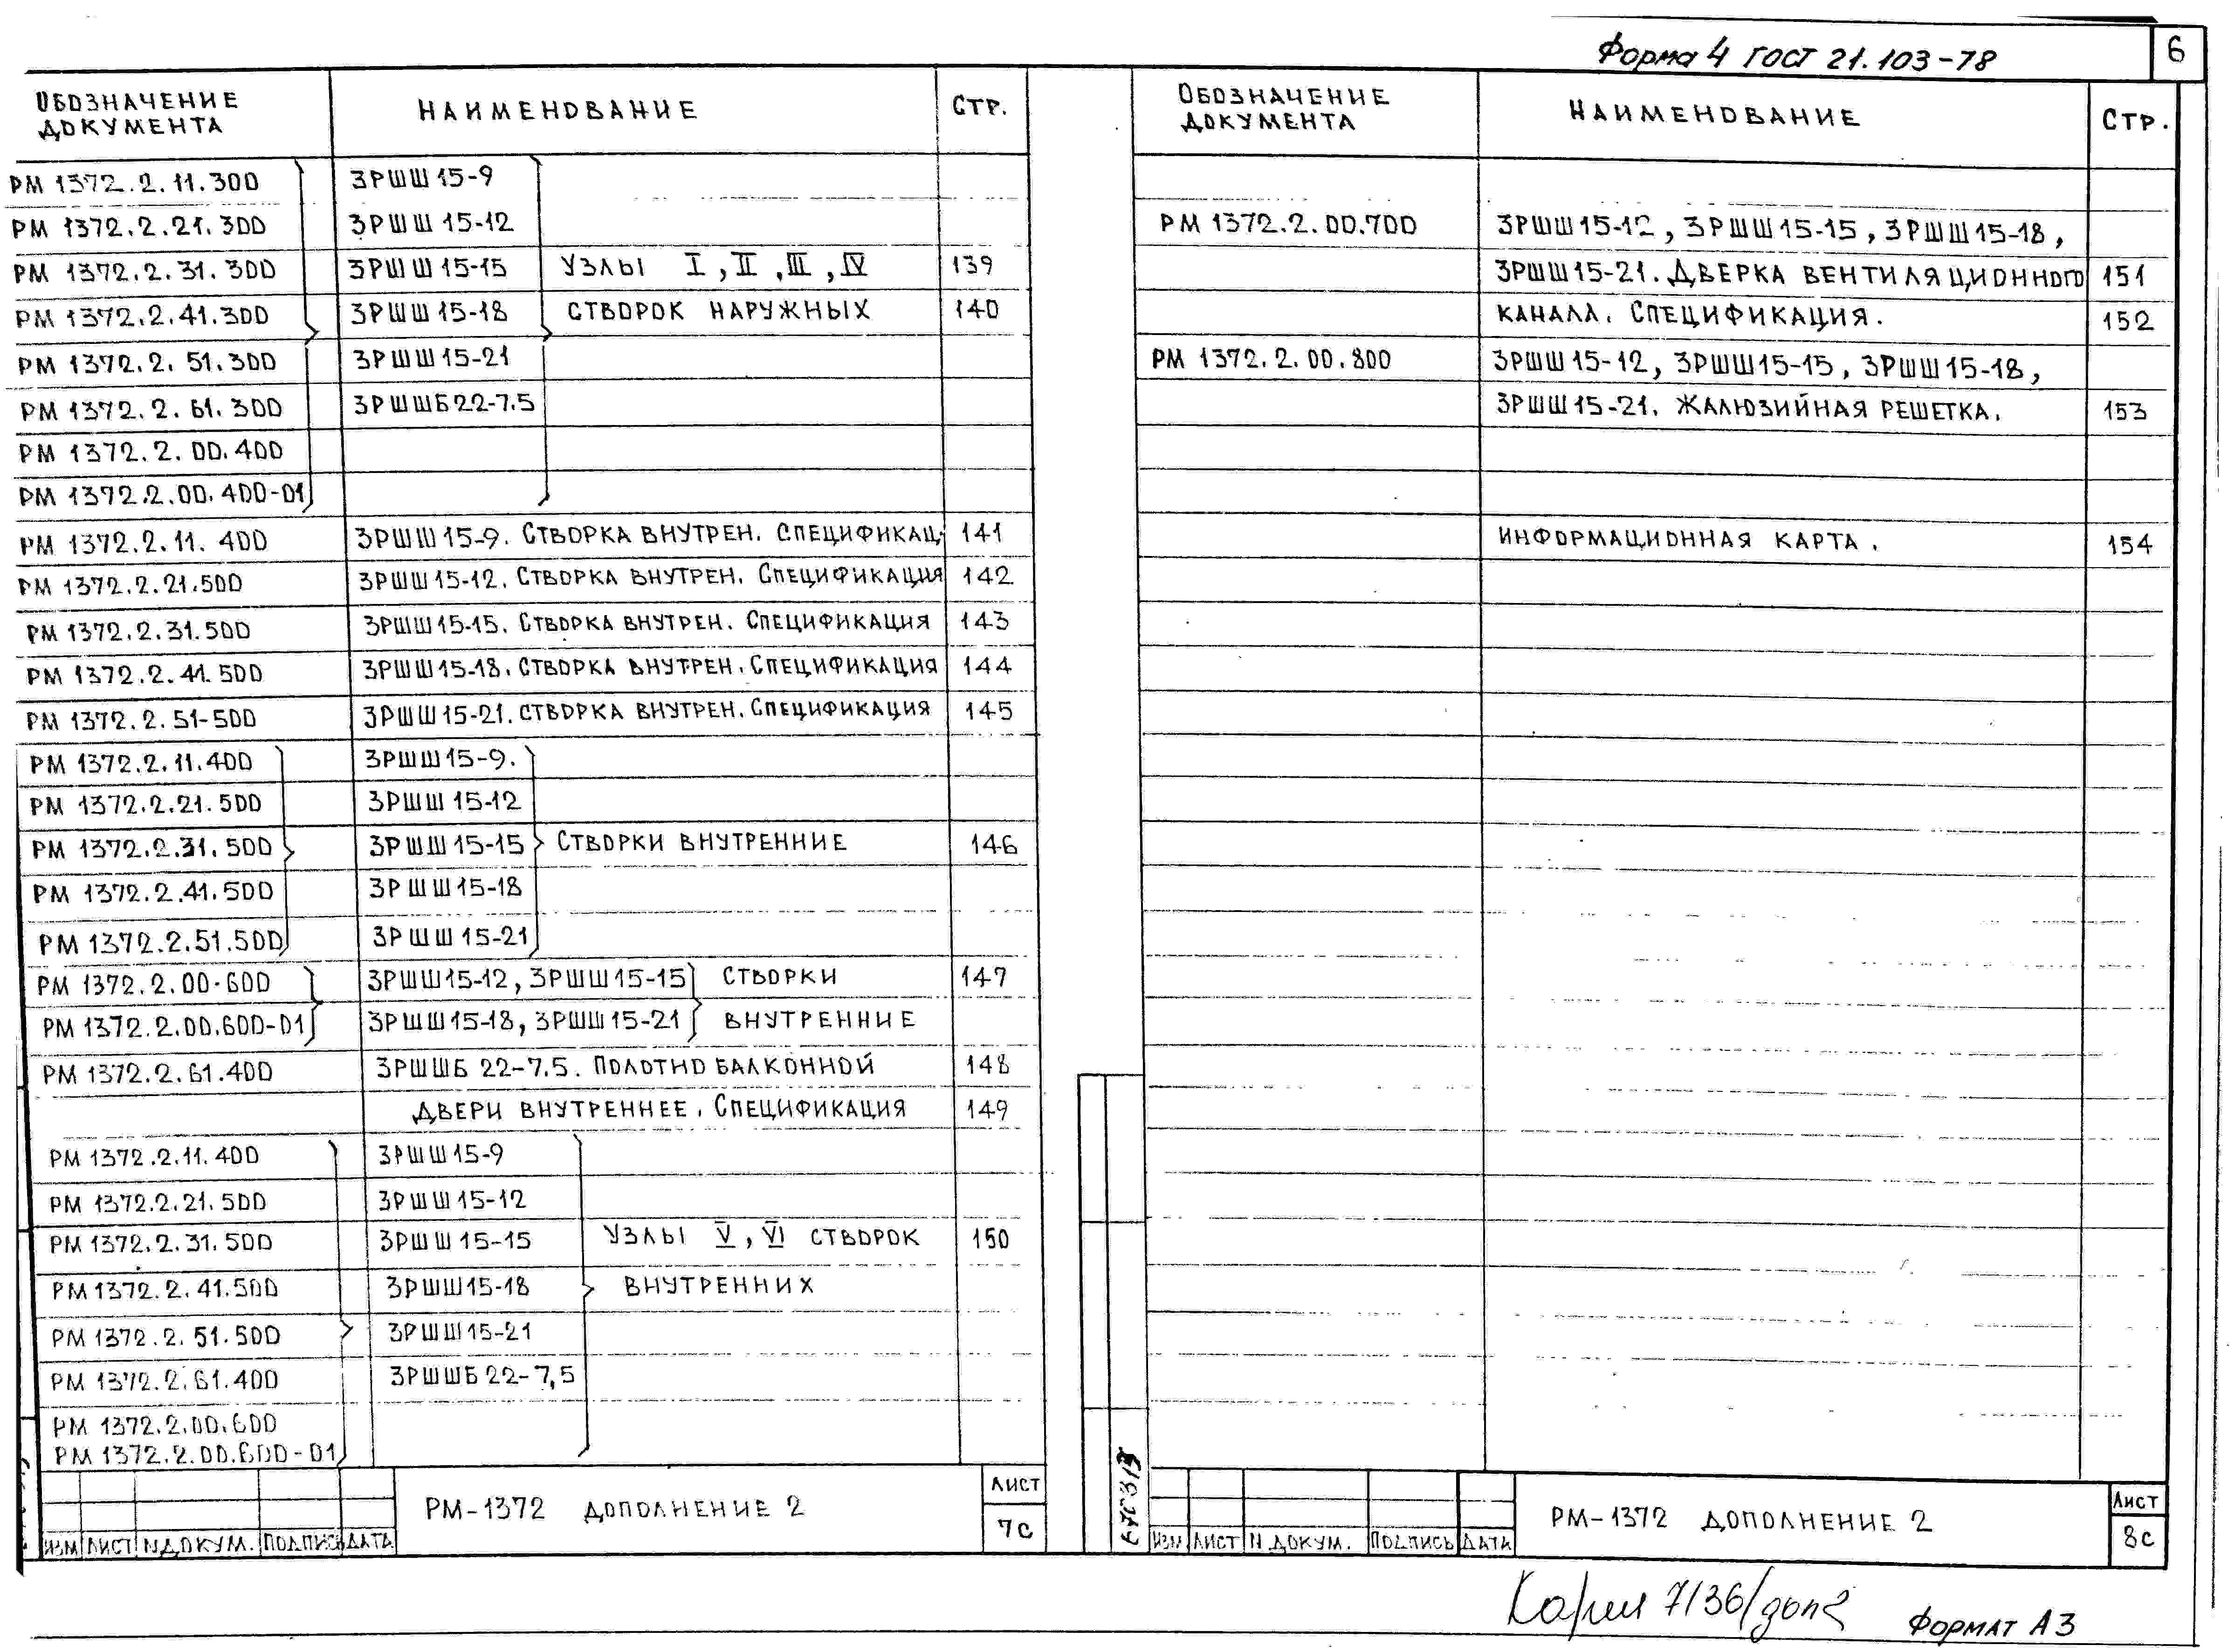 Форма 4 ГОСТ 21.103-78
6
ОБОЗНАЧЕНИЕ ДОКУМЕНТА НАИМЕНОВАНИЕ СТР.
РМ 1372.2.11.300 3РШШ15-9
РМ 1372.2.21.300 3РШШ15-12
РМ 1372.2.31.300 3РШШ15-15 УЗЛЫ I, II, III, IV 139
РМ 1372.2.41.300 3РШШ15-18 СТВОРОК НАРУЖНЫХ 140
РМ 1372.2.51.300 3РШШ15-21
РМ 1372.2.61.300 3РШШБ22-7.5
РМ 1372.2.00.400
РМ 1372.2.00.400-01
РМ 1372.2.11.400 3РШШ15-9. СТВОРКА ВНУТРЕН. СПЕЦИФИКАЦ. 141
РМ 1372.2.21.500 3РШШ15-12. СТВОРКА ВНУТРЕН. СПЕЦИФИКАЦИЯ 142
РМ 1372.2.31.500 3РШШ15-15. СТВОРКА ВНУТРЕН. СПЕЦИФИКАЦИЯ 143
РМ 1372.2.41.500 3РШШ15-18. СТВОРКА ВНУТРЕН. СПЕЦИФИКАЦИЯ 144
РМ 1372.2.51-500 3РШШ15-21. СТВОРКА ВНУТРЕН. СПЕЦИФИКАЦИЯ 145
РМ 1372.2.11.400 3РШШ15-9.
РМ 1372.2.21.500 3РШШ15-12
РМ 1372.2.31.500 3РШШ15-15 СТВОРКИ ВНУТРЕННИЕ 146
РМ 1372.2.41.500 3РШШ15-18
РМ 1372.2.51.500 3РШШ15-21
РМ 1372.2.00.600 3РШШ15-12, 3РШШ15-15 СТВОРКИ 147
РМ 1372.2.00.600-01 3РШШ15-18, 3РШШ15-21 ВНУТРЕННИЕ
РМ 1372.2.61.400 3РШШБ 22-7.5. ПОЛОТНО БАЛКОННОЙ 148
ДВЕРИ ВНУТРЕННЕЕ. СПЕЦИФИКАЦИЯ 149
РМ 1372.2.11.400 3РШШ15-9
РМ 1372.2.21.500 3РШШ15-12
РМ 1372.2.31.500 3РШШ15-15 УЗЛЫ V, VI СТВОРОК 150
РМ 1372.2.41.500 3РШШ15-18 ВНУТРЕННИХ
РМ 1372.2.51.500 3РШШ15-21
РМ 1372.2.61.400 3РШШБ22-7,5
РМ 1372.2.00.600
РМ 1372.2.00.600-01
ИЗМ ЛИСТ N ДОКУМ. ПОДПИСЬ ДАТА
РМ-1372 ДОПОЛНЕНИЕ 2
ЛИСТ
7С
ОБОЗНАЧЕНИЕ ДОКУМЕНТА НАИМЕНОВАНИЕ СТР.
РМ 1372.2.00.700 3РШШ15-12, 3РШШ15-15, 3РШШ15-18,
3РШШ15-21. ДВЕРКА ВЕНТИЛЯЦИОННОГО 151
КАНАЛА. СПЕЦИФИКАЦИЯ. 152
РМ 1372.2.00.800 3РШШ15-12, 3РШШ15-15, 3РШШ15-18,
3РШШ15-21. ЖАЛЮЗИЙНАЯ РЕШЕТКА. 153
ИНФОРМАЦИОННАЯ КАРТА. 154
ИЗМ ЛИСТ N ДОКУМ. ПОДПИСЬ ДАТА
РМ-1372 ДОПОЛНЕНИЕ 2
ЛИСТ
8С
7136/доп2
ФОРМАТ А3